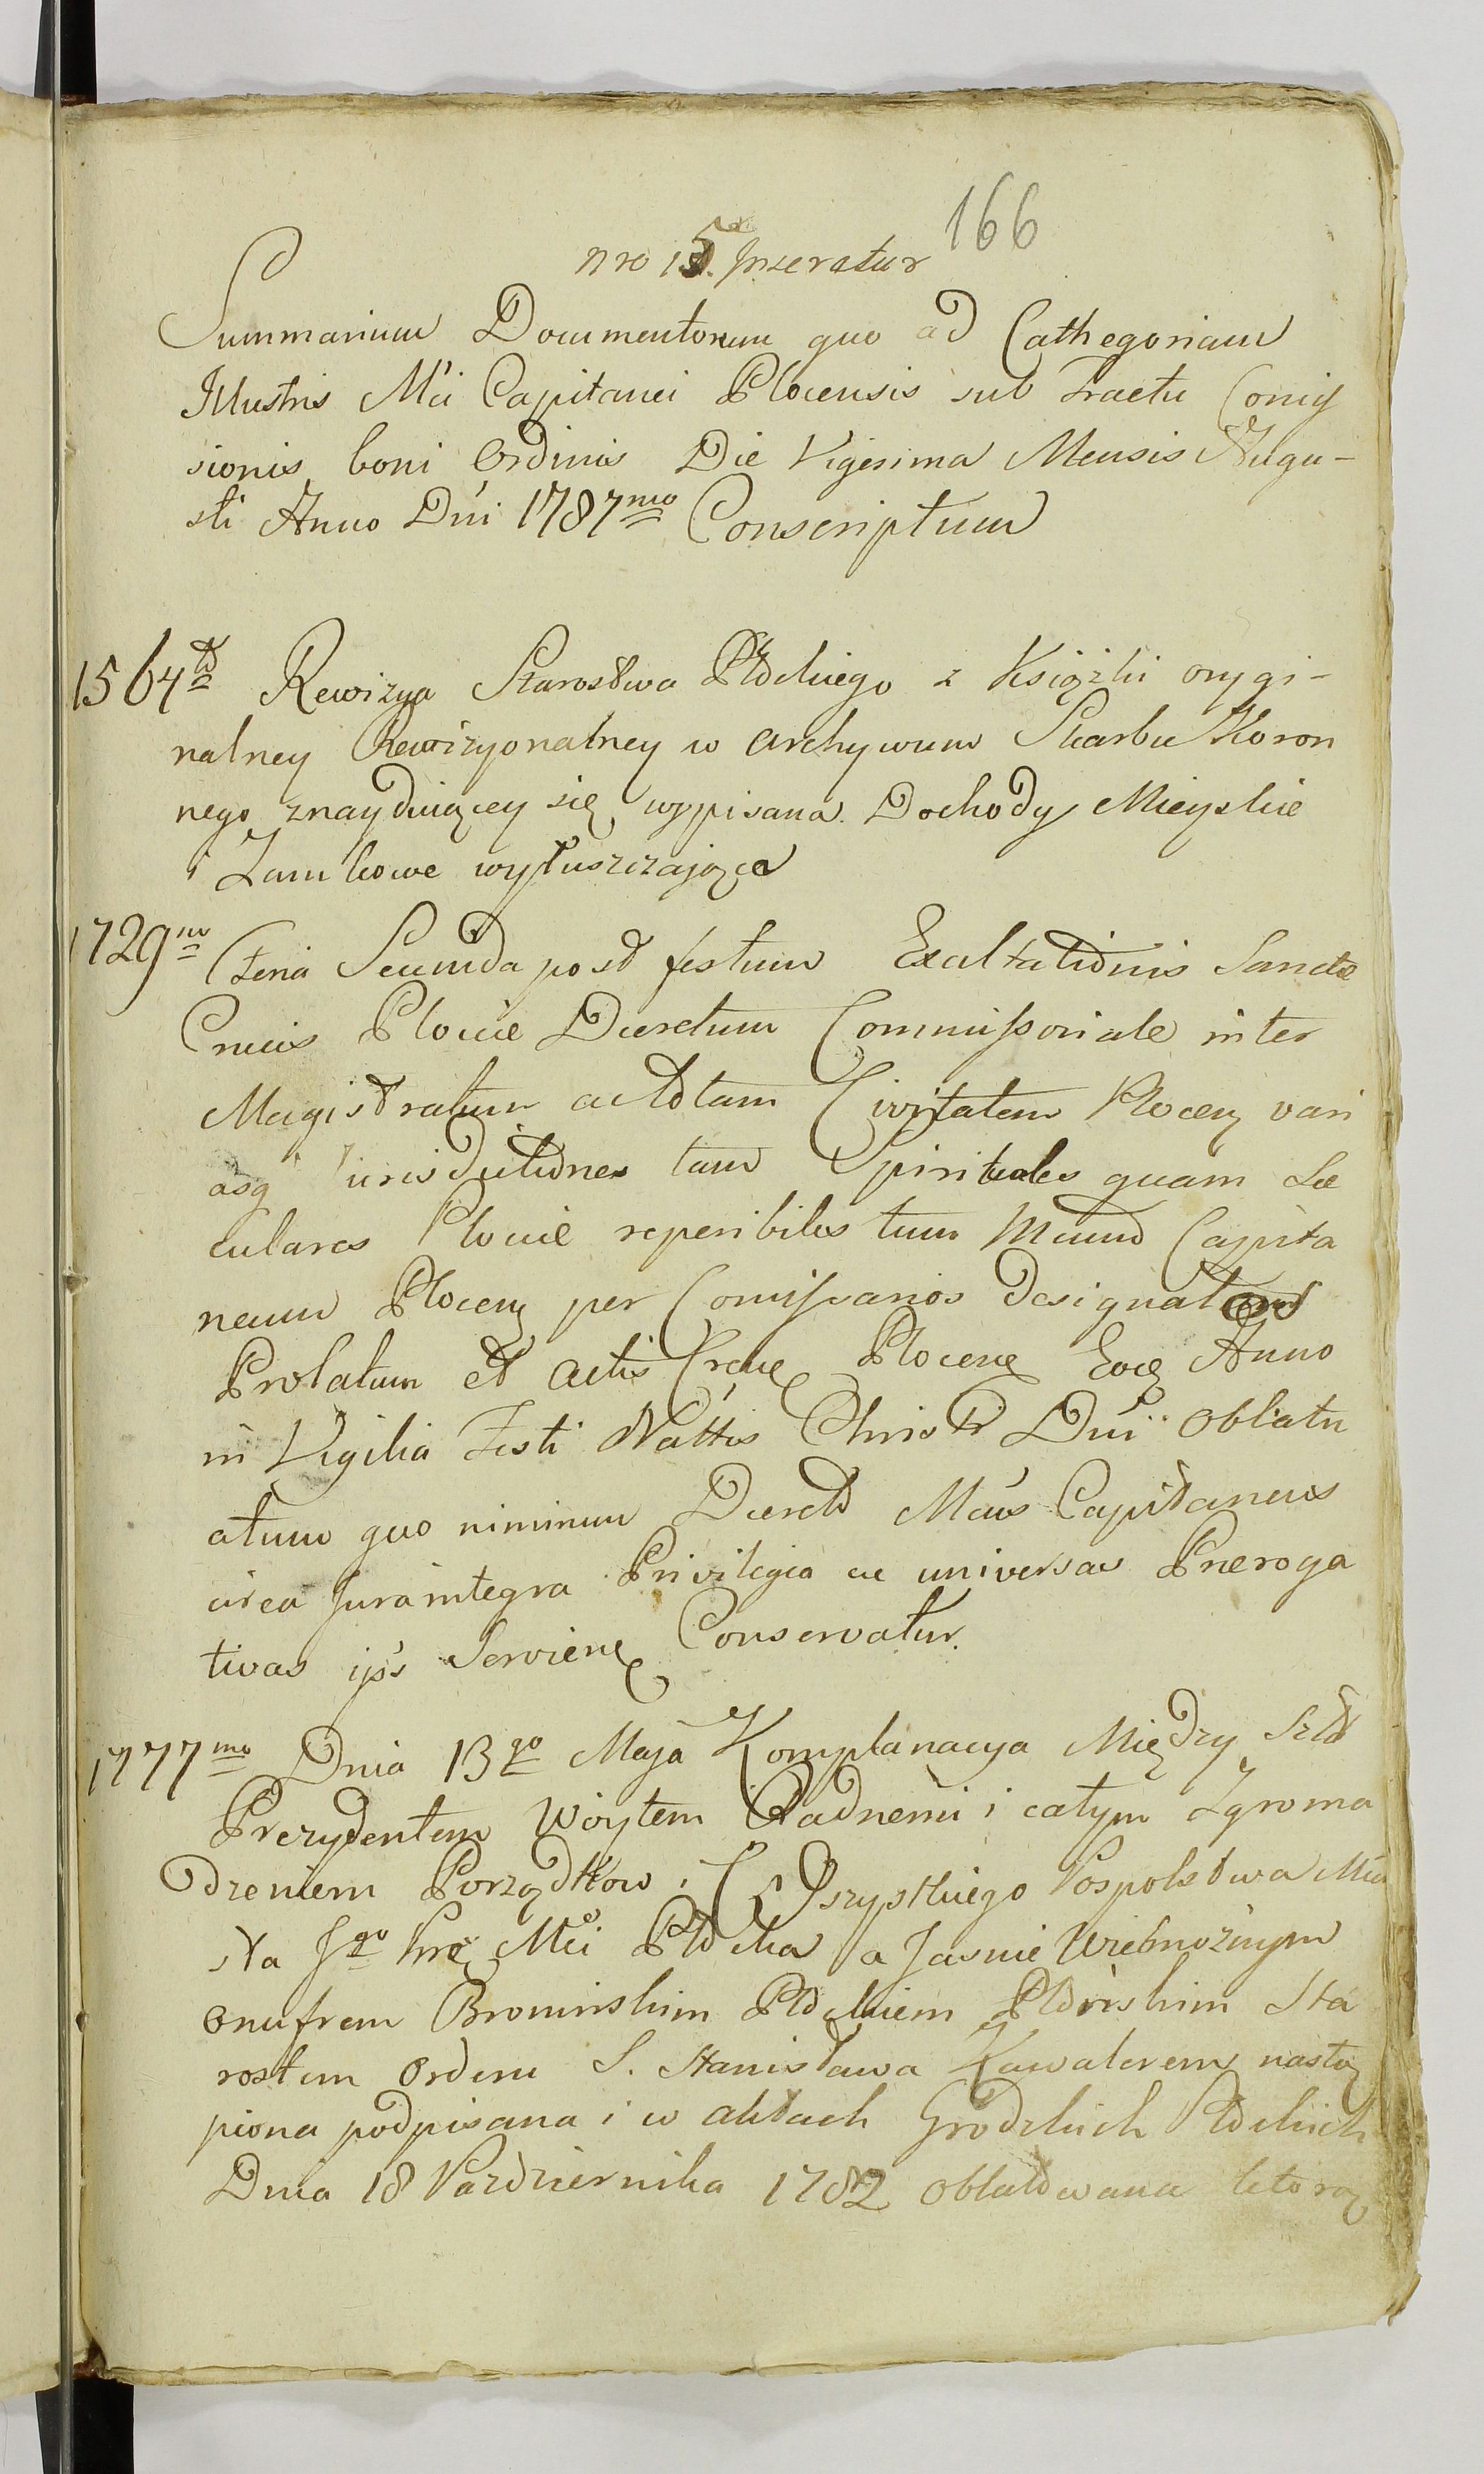 166
nro 15. Inseratur
Summarium Documentorum quo ad Cathegoriam
Illustris Mci Capitanei Plocensis sub Tractu Comis
sionis boni Ordinis Die Vigesima Mensis Augu-
sti Anno Dni 1787mo Conscriptum
1564to Rewizya Starostwa Płockiego z Książki orygi-
nalney Rewizyonalney w Archywum Skarbu Koron
nego znayduiącey się wypisana. Dochody Mieyskie
i Zamkowe wyłuszczaiąca
1729no Feria Secunda post festum Exaltationis Sanctæ
Crucis Plociæ Decretum Commissoriale inter
Magistratum ac totam Civitatem Plocen vari
asq iurisdictiones tam Spirituales quam Sæ
culares Plociæ reperibiles tum Mcum Capita
neum Plocen per Comissarios designatos
Prolatum et Actis Plocen Eoq Anno
in Vigilia Festi Nattis Christi Dni Oblatu
atum quo nimirum Dcreto Mcus Capitaneus
circa Jura integra Privilegia ac universas Preroga
tivas ips Servien Conservatur.
1777mo Dnia 13go Maja Komplanacya Między Szl
Prezydentem Wóytem Radnemi i całym Zgroma
dzeniem Porządkow i Wszystkiego Pospolstwa Mia
sta Jgo Kre Mci Płocka a Jasnie Wielmożnym
Onufrem Bromirskim Płockiem Płońskim Sta
rostem Orderu S. Stanisława Kawalerem nastą
piona podpisana i w aktach Grodzkich Płockich
Dnia 18 Pazdziernika 1782 oblatowana którą